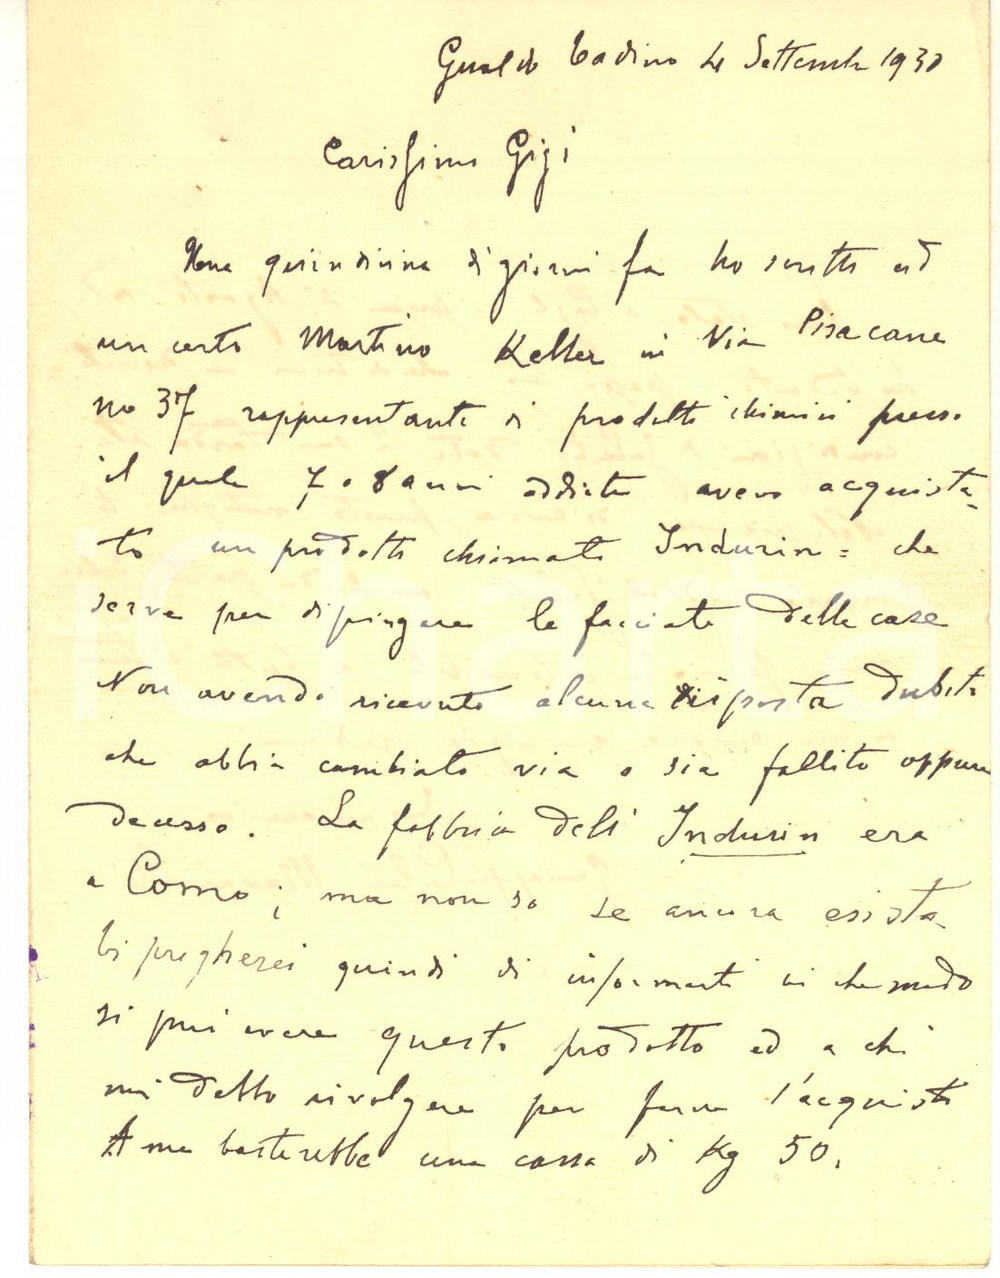 Gualdo Tadino 4 Settembre 1930
Carissimo Gigi
Una quindicina di giorni fa ho scritto ad
un certo Martino Keller in Via Pisacane
no 37 rappresentante di prodotti chimici presso
il quale 7 o 8 anni addietro avevo acquista-
to un prodotto chiamato Indurin = che
serve per dipingere le facciate delle case
Non avendo ricevuto alcuna risposta dubito
che abbia cambiato via o sia fallito oppure
decesso. La fabbrica dell' Indurin era
a Como; ma non so se ancora esista
Ti pregherei quindi di informarti in che modo
si può avere questo prodotto ed a chi
mi debbo rivolgere per farne l'acquisto
A me basterebbe una cassa di Kg 50.